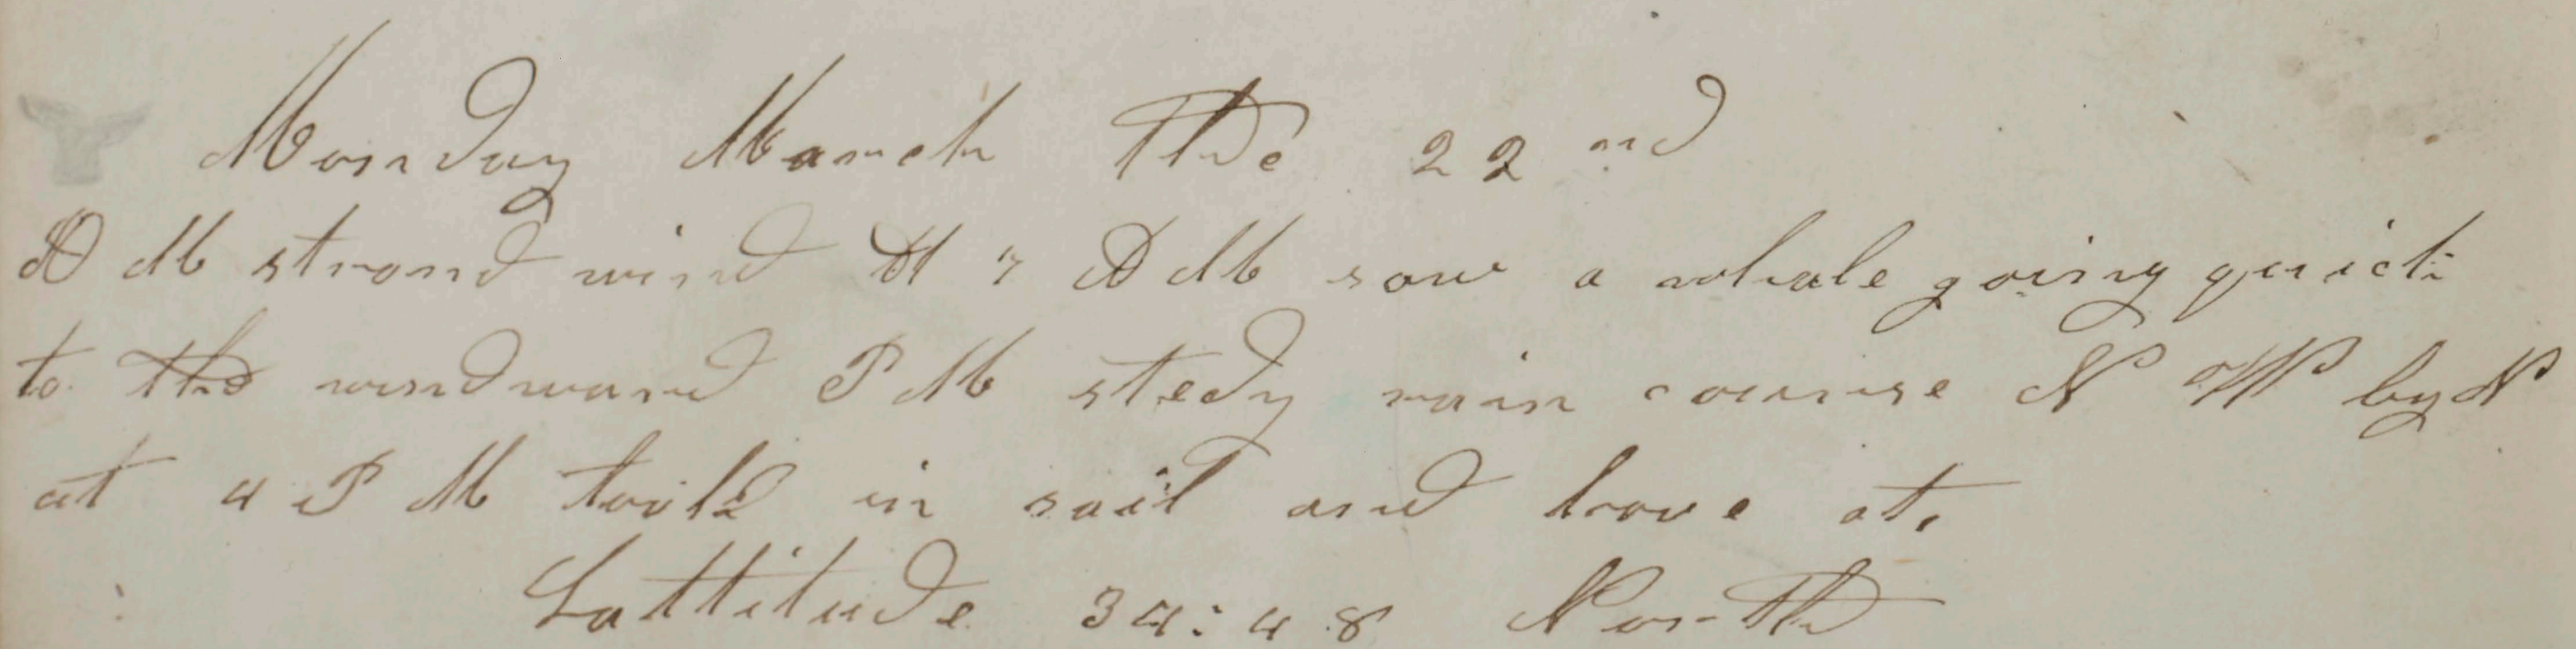 Monday March the 22nd
A M strond wind At 7 A M saw a whale going quick
to the windward P M stedy rain course N W by N
at 4 P M took in sail and hove at.
Lattitude 34:48 North